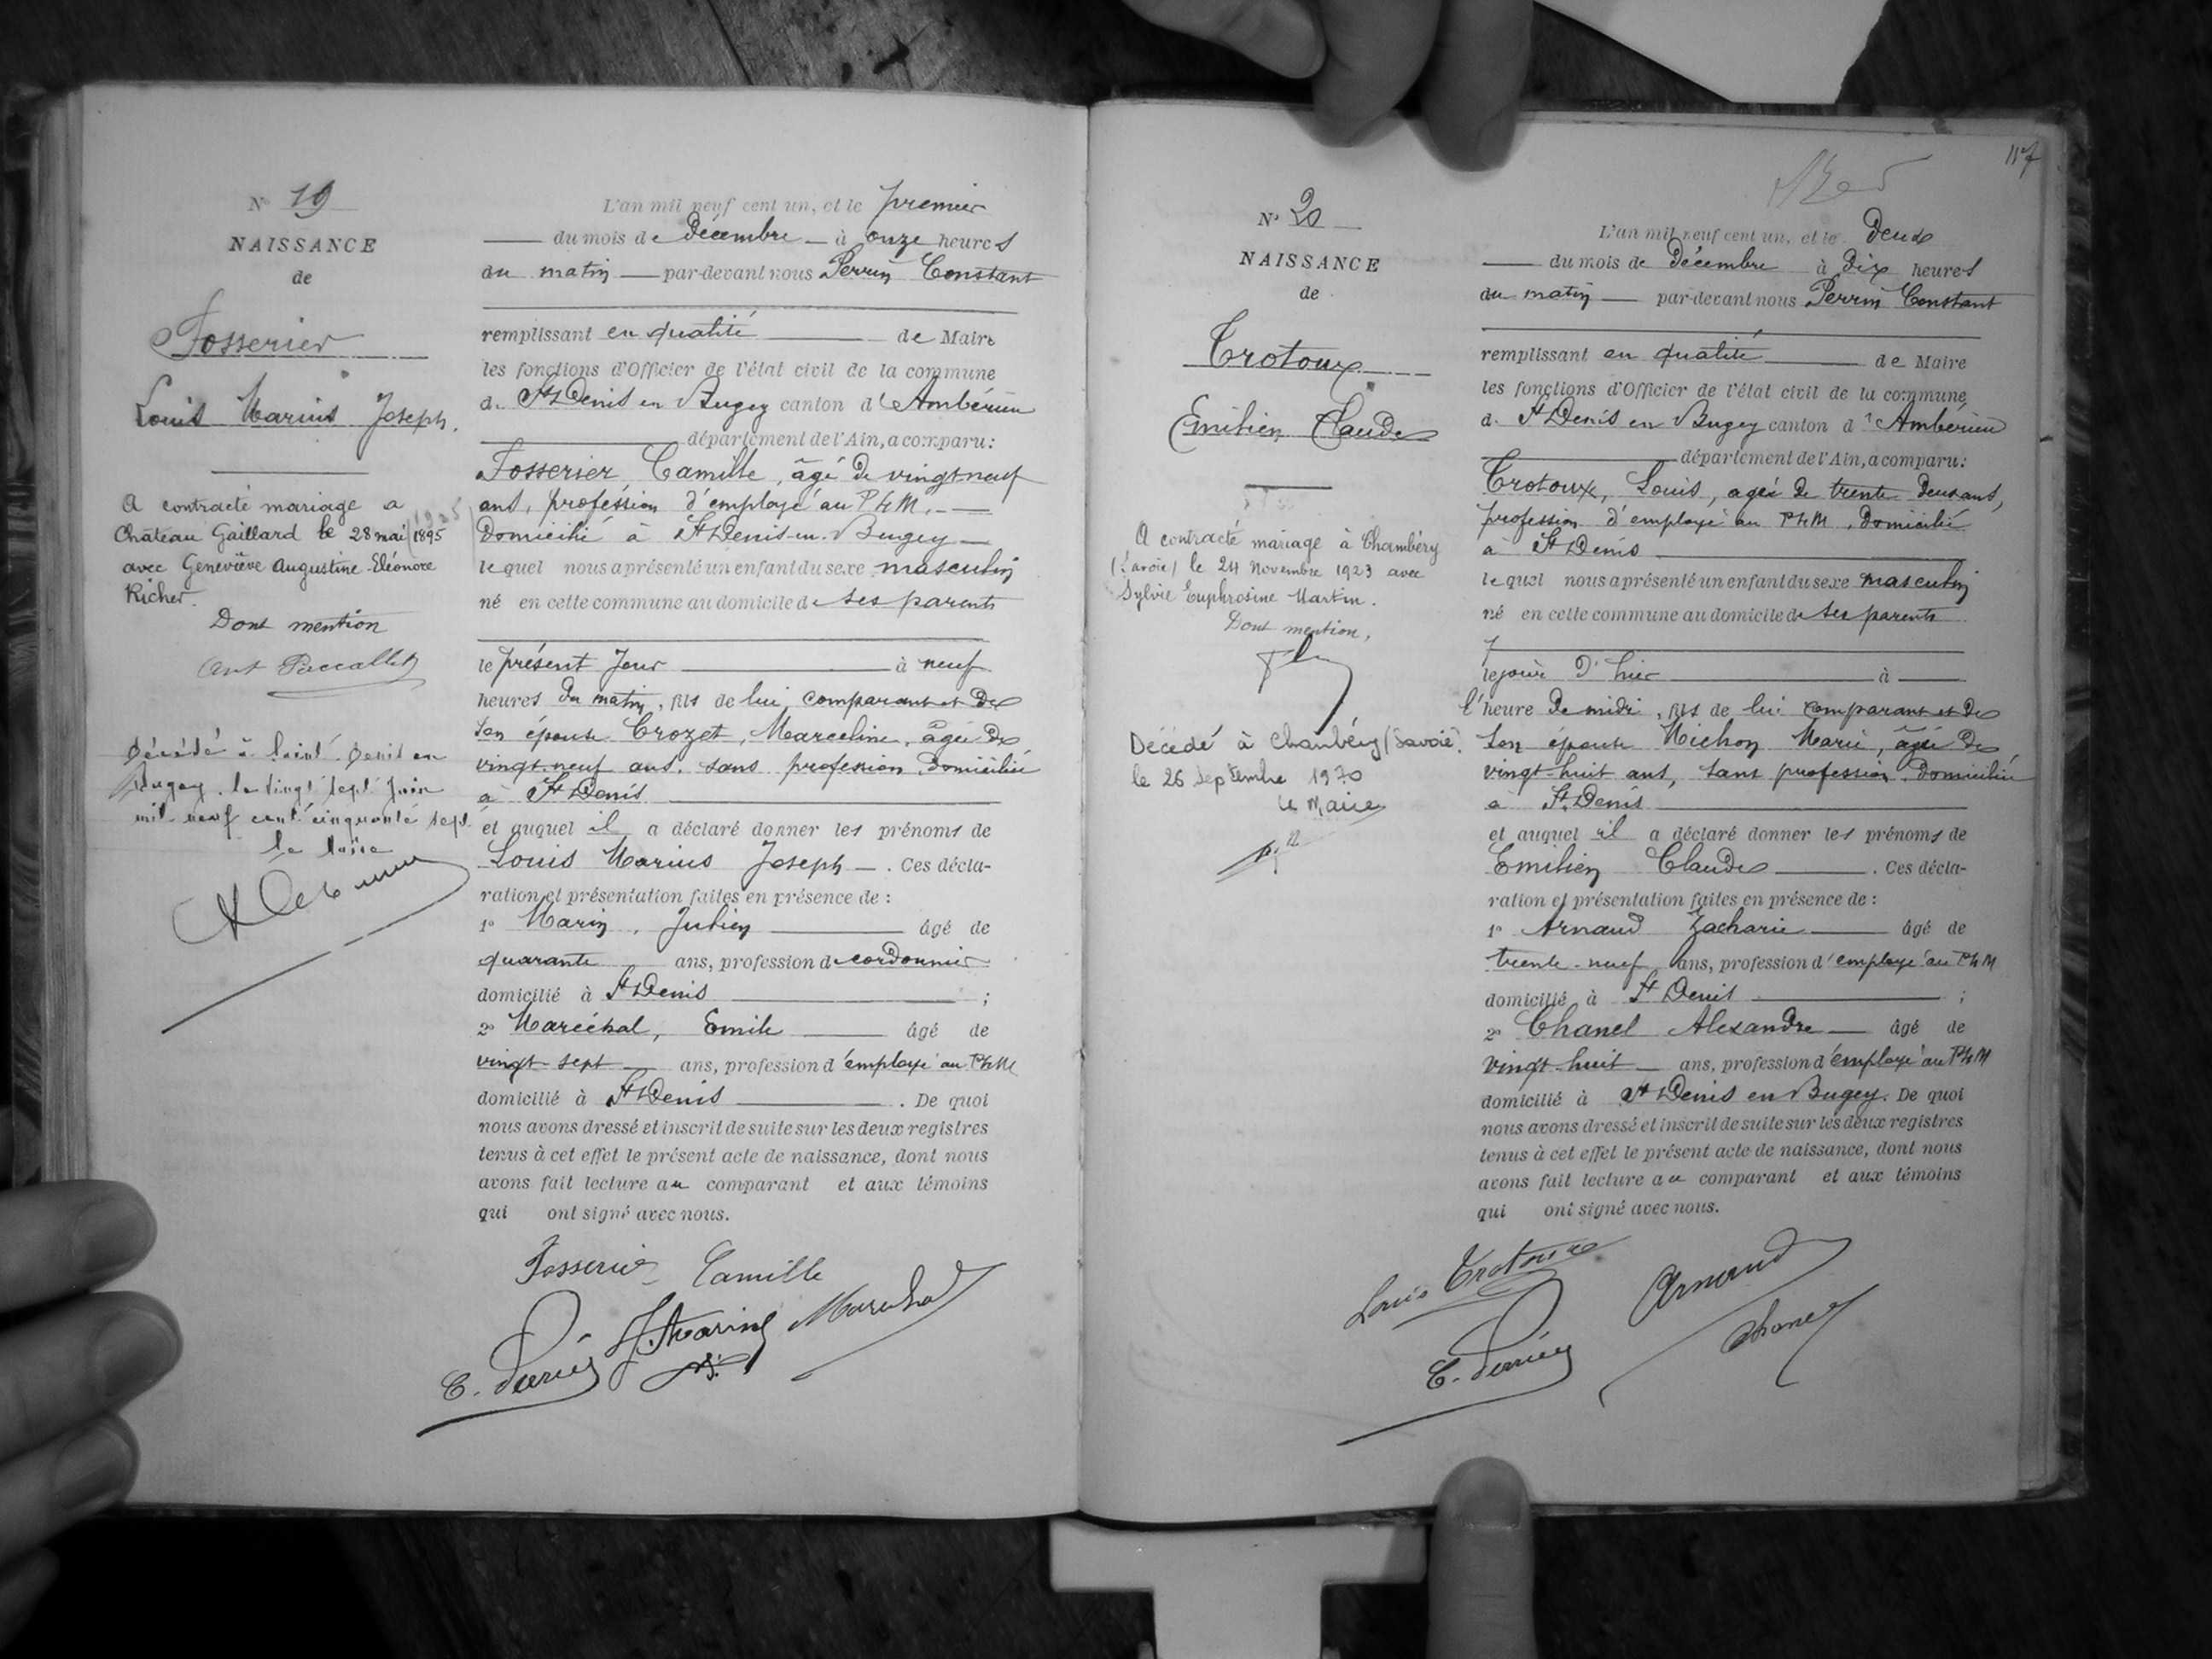 N° 19
NAISSANCE
de
Fosserier
Louis Marius Joseph.
A contracté mariage a
Château Gaillard le 28 mai 1895
1925
avec Geneviève Augustine Eléonore
Richer.
Dont mention
Décédé à Saint Denis en
Bugey le vingt sept Juin
mil neuf cent cinquante sept.
Le Maire
L'an mil neuf cent un, et le premier
du mois de Décembre à onze heures
du matin par-devant nous Perrin Constant
remplissant en qualité de Maire
les fonctions d'Officier de l'état civil de la commune
de St Denis en Bugey canton d'Ambérieu
département de l'Ain, a comparu:
Fosserier Camille, âgé de vingt neuf
ans, profession d'employé au PLM.
Domicilié à St Denis-en-Bugey
lequel nous a présenté un enfant du sexe masculin
né en cette commune au domicile de ses parents
le présent jour à neuf
heures du matin, fils de lui comparant et de
son épouse Crozet, Marceline, âgée de
vingt-neuf ans, sans profession, domiciliée
à St Denis
et auquel il a déclaré donner les prénoms de
Louis Marius Joseph. Ces décla-
ration et présentation faites en présence de :
1° Marin, Julien âgé de
quarante ans, profession de cordonnier
domicilié à St Denis ;
2° Maréchal, Emile âgé de
vingt-sept ans, profession d'employé au PLM
domicilié à St Denis. De quoi
nous avons dressé et inscrit de suite sur les deux registres
tenus à cet effet le présent acte de naissance, dont nous
avons fait lecture au comparant et aux témoins
qui ont signé avec nous.
Fosserier Camille
C. Perrin J. Marin Marechal
117
N° 20
NAISSANCE
de
Trotoux
Emilien Claude
A contracté mariage à Chambéry
(Savoie) le 24 Novembre 1923 avec
Sylvie Euphrosine Martin.
Dont mention,
Décédé à Chambéry (Savoie).
le 26 septembre 1970
Le Maire
L'an mil neuf cent un, et le Deux
du mois de Décembre à Dix heures
du matin par-devant nous Perrin Constant
remplissant en qualité de Maire
les fonctions d'Officier de l'état civil de la commune
de St Denis en Bugey canton d'Ambérieu
département de l'Ain, a comparu:
Trotoux, Louis, agé de trente deux ans,
profession d'employé au PLM, domicilié
à St Denis
lequel nous a présenté un enfant du sexe masculin
né en cette commune au domicile de ses parents
le jour d'hier à
l'heure de midi, fils de lui comparant et de
son épouse Michon Marie, âgée de
vingt-huit ans, sans profession, domiciliée
à St Denis
et auquel il a déclaré donner les prénoms de
Emilien Claude. Ces décla-
ration et présentation faites en présence de :
1° Arnaud Zacharie âgé de
trente-neuf ans, profession d'employé au PLM
domicilié à St Denis ;
2° Chanel Alexandre âgé de
vingt-huit ans, profession d'employé au PLM
domicilié à St Denis en Bugey. De quoi
nous avons dressé et inscrit de suite sur les deux registres
tenus à cet effet le présent acte de naissance, dont nous
avons fait lecture au comparant et aux témoins
qui ont signé avec nous.
Louis Trotoux Arnaud
C. Perrin Chanel